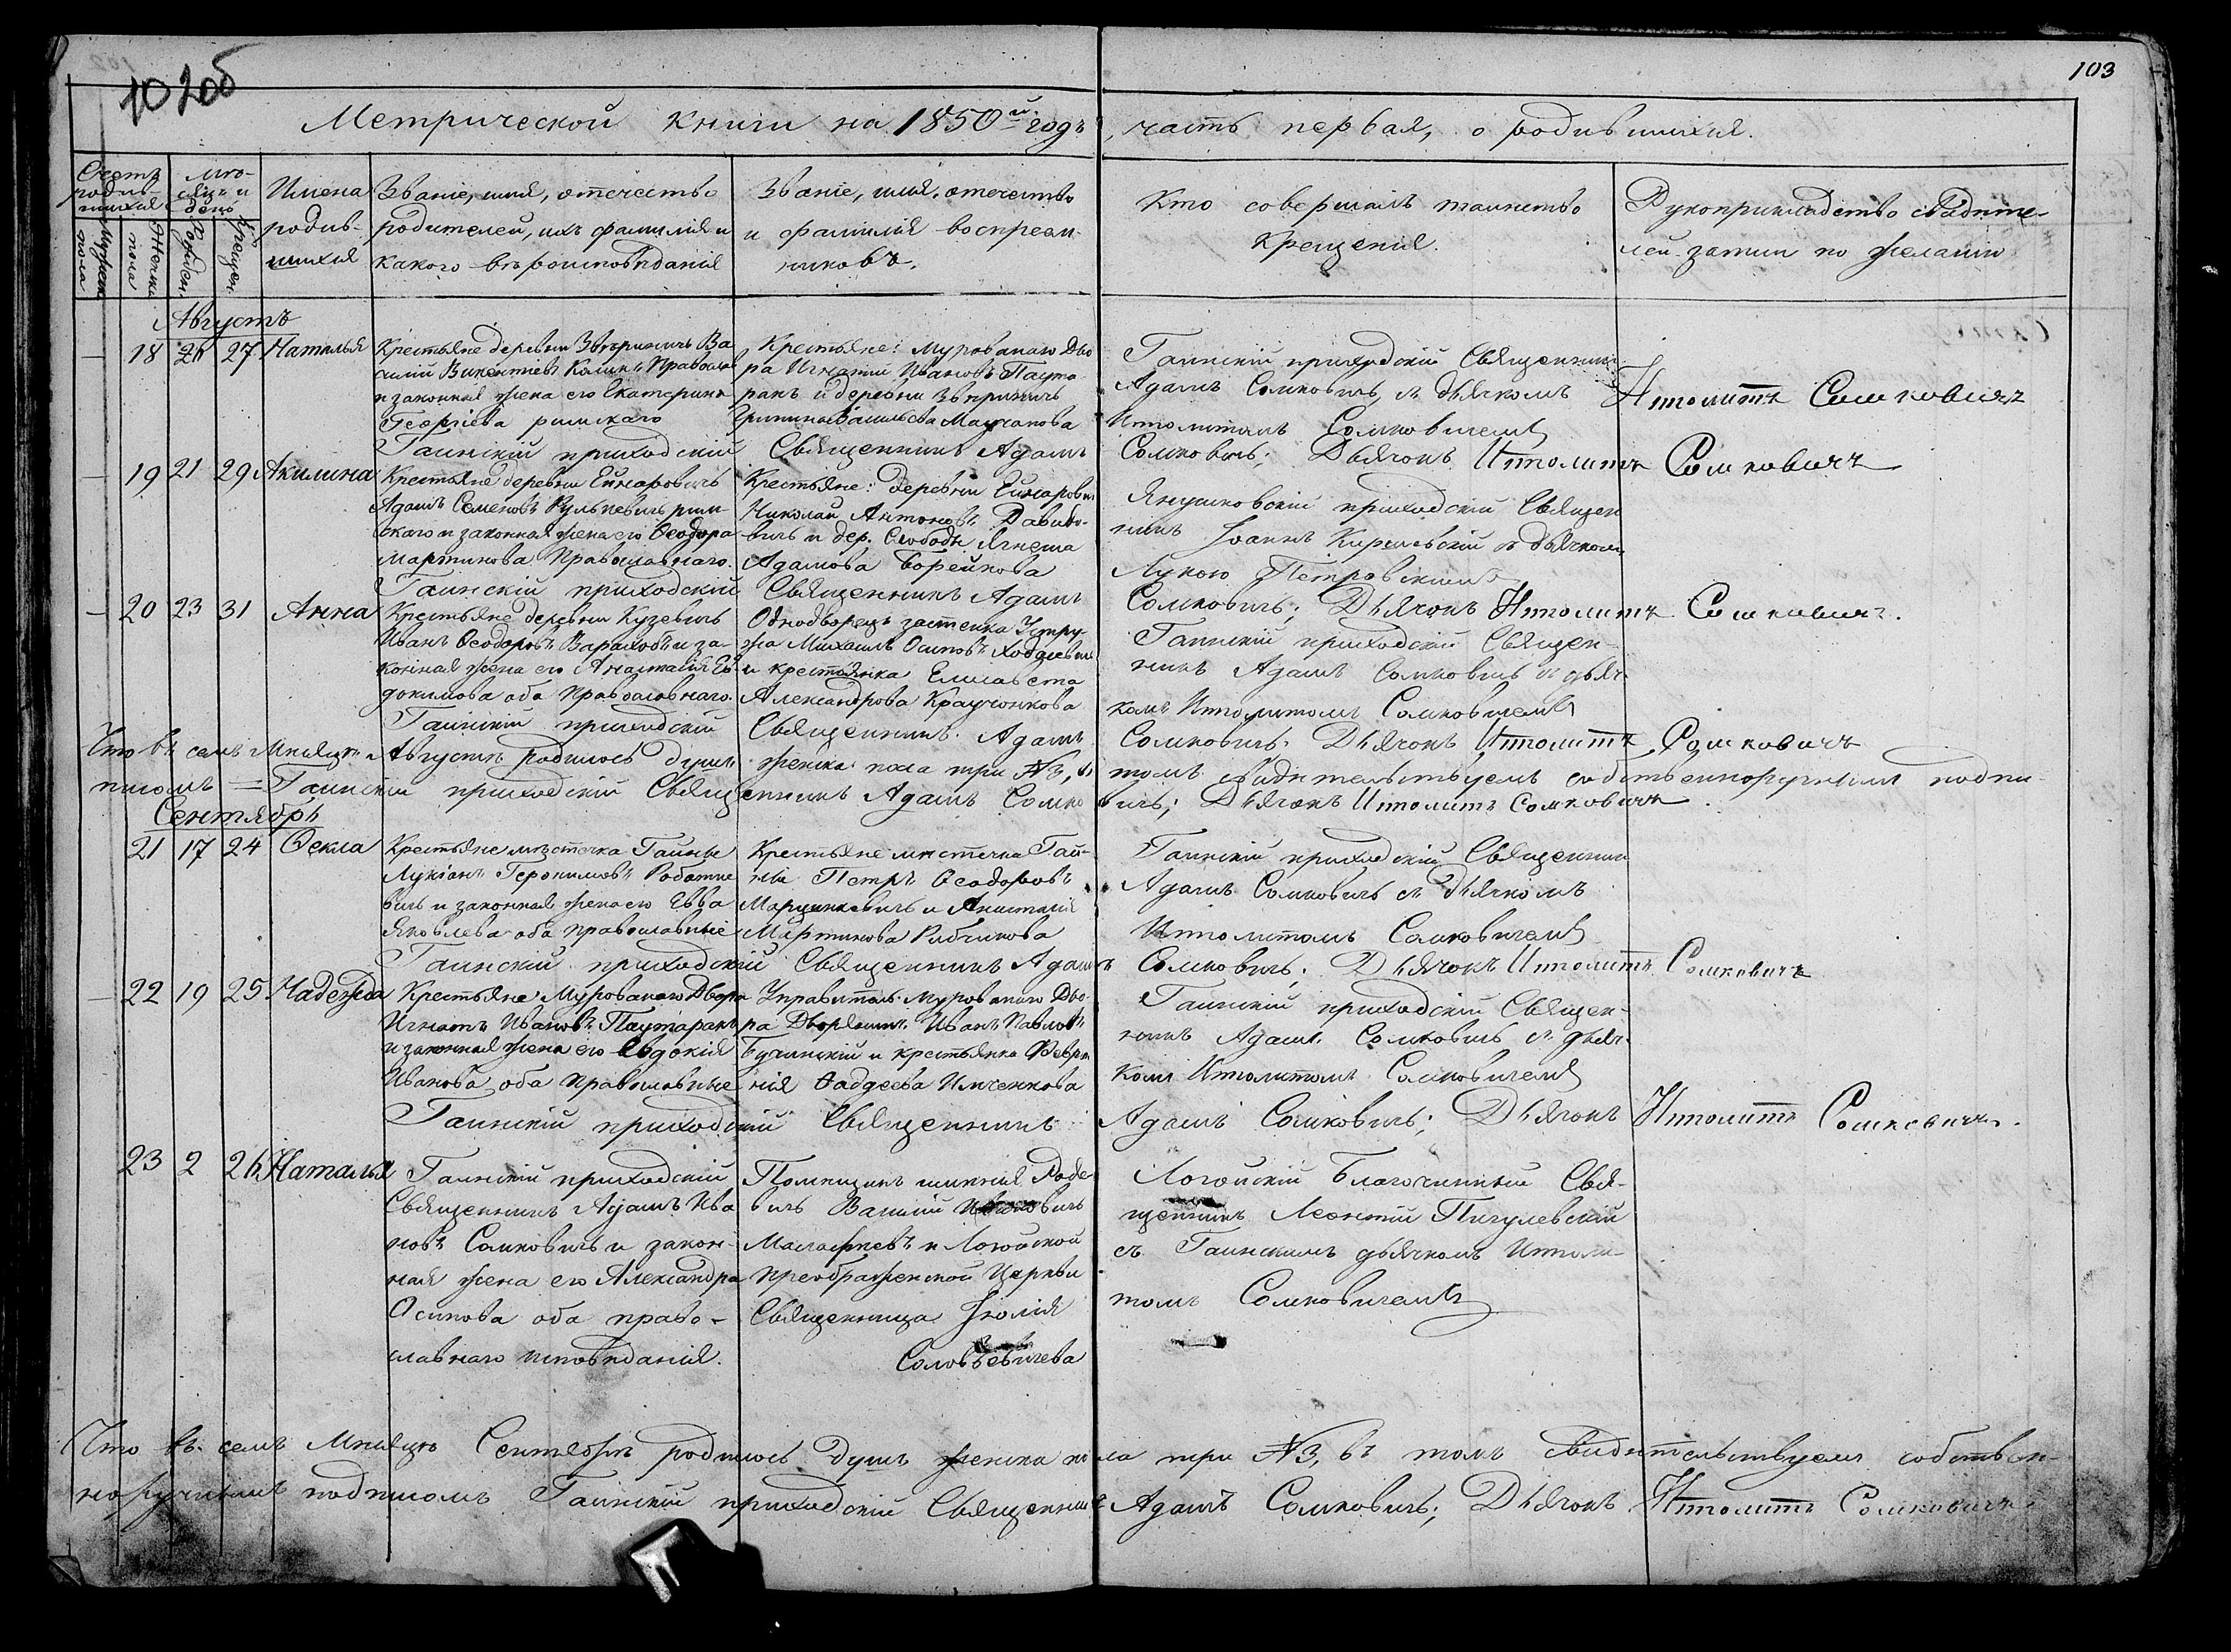 102об
103
Метрической книги на 1850й годъ, часть первая, о родившихся.
Счетъ родив-шихся
Мѣ-сяцъ и день
Имена родив-шихся
Званіе, имя, отечество родителей, ихъ фамилія и какого вѣроисповѣданія
Званіе, имя, отечество и фамилія воспреем-никовъ.
Кто совершалъ таинство крещенія.
Рукоприкладство свидѣте-лей записи по желанію
Мужеска пола
Женска пола
Рожден.
Крещен.
Августъ
18 26 27 Наталья
Крестьяне деревни Звѣриничъ Ва
силій Викентіевъ Православ
и законная жена его Екатерина
Георгіева римскаго
Крестьяне: Мурованаго Дво
ра Игнатій Ивановъ Паута
ракъ и деревни Звѣриничъ
Васильева
Гаинскій приходскій Священникъ
Адамъ Сомковичъ съ дьячкомъ
Ипполитомъ Сомковичемъ
Ипполитъ Сомковичъ
Гаинскій приходскій Священникъ Адамъ Сомковичъ; Дьячокъ Ипполитъ Сомковичъ
19 21 29 Акилина
Крестьяне деревни Ейнаровичъ
Адамъ Семеновъ рим
скаго и законная жена его Ѳеодора
Мартинова Православнаго.
Крестьяне: деревни Ейнарович
Николай Антоновъ Давидо-
вичъ и дер. Слободы Ягнеша
Адамова Борейкова
Янушковскій приходскій Священ
никъ Іоаннъ съ дьячкомъ
Лукою Петровскимъ
Гаинскій приходскій Священникъ Адамъ Сомковичъ; Дьячокъ Ипполитъ Сомковичъ.
20 23 31 Анна
Крестьяне деревни Кузевичъ
Иванъ Ѳеодоровъ и за-
конная жена его Анастасія Ев
докимова оба Православнаго.
Однодворецъ застенка Устру-
жа Михаилъ Осиповъ Ходасевичъ
и крестьянка Елисавета
Александрова Краучонкова
Гаинскій приходскій Священ-
никъ Адамъ Сомковичъ съ дьяч-
комъ Ипполитомъ Сомковичемъ
Гаинскій приходскій Священникъ Адамъ Сомковичъ. Дьячокъ Ипполитъ Сомковичъ
Что въ семъ Мѣсяцѣ Августѣ родилось душъ женска пола три №3, въ томъ свидѣтельствуемъ собственноручнымъ подпи-
писомъ = Гаинскій приходскій Священникъ Адамъ Сомковичъ; Дьячокъ Ипполитъ Сомковичъ.
Сентябрь
21 17 24 Ѳекла
Крестьяне мѣстечка Гаины
Лукіанъ Героптмовъ Работке
вичъ и законная жена его Евва
Яковлева оба православные
Крестьяне мѣстечка Гай-
ны Петръ Ѳеодоровъ
Марцинкевичъ и Анастасія
Мартинова Рибчикова
Гаинскій приходскій Священник
Адамъ Сомковичъ съ дьячкомъ
Ипполитомъ Сомковичемъ
Гаинскій приходскій Священникъ Адамъ Сомковичъ. Дьячокъ Ипполитъ Сомковичъ
22 19 25 Надежда
Крестьяне Мурованаго Двора
Игнатъ Ивановъ Паутаракъ
и законная жена его Евдокія
Иванова оба Православные
Управитель Мурованаго Дво-
ра Дворянинъ Иванъ Павловъ
Бучинскій и крестьянка Февро
нія Ѳаддеева Имченкова
Гаинскій приходскій Священ-
никъ Адамъ Сомковичъ съ дьяч-
комъ Ипполитомъ Сомковичемъ
Гаинскій приходскій Священникъ Адамъ Сомковичъ; Дьячокъ Ипполитъ Сомковичъ.
23 2 26 Наталья
Гаинскій приходскій
Священникъ Адамъ Ива
новъ Сомковичъ и закон-
ная жена его Александра
Осипова оба право-
славнаго исповѣданія.
Помѣщикъ имѣнія Раде-
вичъ Василій Ивановичъ
и Логойской
Преображенской Церкви
Священница Іюлія
Соловьевичева
Логойскій Благочинный Свя-
щенникъ Леонтій Пигулевскій
съ Гаинскимъ дьячкомъ Иппoли-
томъ Сомковичемъ
Что въ семъ Мѣсяцѣ Сентябрѣ родилось душъ женска пола три №3, въ томъ свидѣтельствуемъ собствен-
норучнымъ подписомъ Гаинскій приходскій Священникъ Адамъ Сомковичъ; Дьячокъ Ипполитъ Сомковичъ.